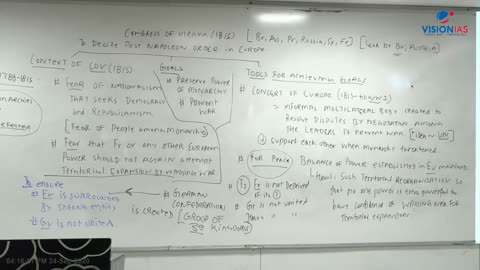 CONGRESS OF VIENNA (1815) [Br, Au, Pr, Russia, Sp, Fr] [Lead by Br, Austria]
To DECIDE POST NAPOLEON ORDER IN EUROPE
VISIONIAS
CONTEXT OF COV (1815)
1789-1815:
# FEAR OF NATIONALISM
THAT SEEKS DEMOCRACY
AND REPUBLICANISM.
[FEAR OF PEOPLE AMONG MONARCHS]
# FEAR THAT Fr OR ANY OTHER EUROPEAN
POWER SHOULD NOT AGAIN ATTEMPT
TERRITORIAL EXPANSION BY WAGING WAR
GOALS
# PRESERVE POWER
OF MONARCHY
# PREVENT
WAR
To ENSURE
# Fr IS SURROUNDED
BY STRONG ENTITIES
# Gr IS NOT UNITED
# GERMAN
CONFEDERATION
IS CREATED [GROUP OF
39 KINGDOMS]
TOOLS FOR ACHIEVING GOALS
# CONCERT OF EUROPE (1815-
= INFORMAL MULTILATERAL BODY CREATED TO
RESOLVE DISPUTES BY NEGOTIATION AMONGST
THE LEADERS TO PREVENT WAR [
SUPPORT EACH OTHER WHEN MONARCHY THREATENED
# FOR PEACE: BALANCE OF POWER ESTABLISHED IN EU
SUCH TERRITORIAL REORGANISATION SO
THAT NO ONE POWER IS EXTRA POWERFUL TO
HAVE CONFIDENCE OF WAGING WAR FOR
TERRITORIAL EXPANSION
Fr IS NOT DEPRIVED
OF ITS
Gr IS NOT UNITED
04:18: PM 24-Sep-2020